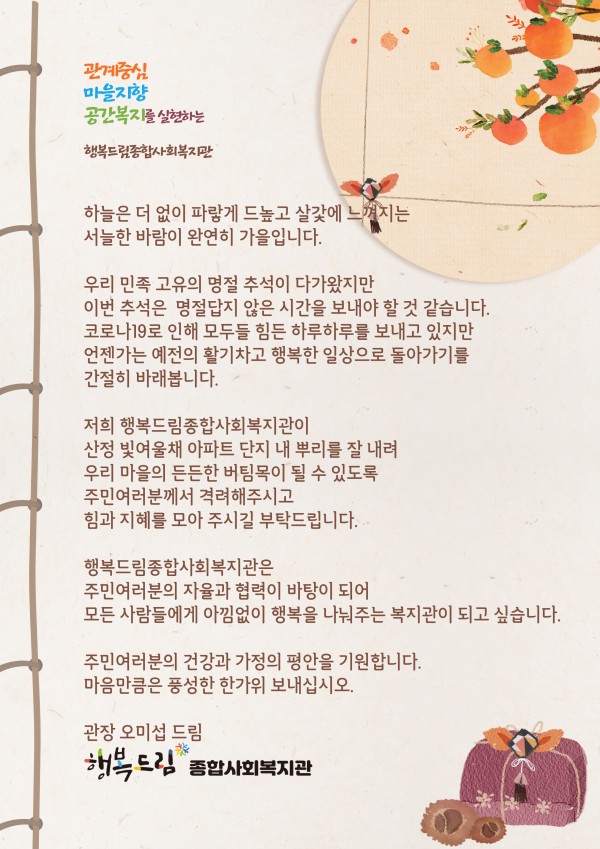 관계중심
마을지향
공간복지를 실현하는
행복드림종합사회복지관
하늘은 더 없이 파랗게 드높고 살갗에 느껴지는
서늘한 바람이 완연히 가을입니다.
우리 민족 고유의 명절 추석이 다가왔지만
이번 추석은 명절답지 않은 시간을 보내야 할 것 같습니다.
코로나19로 인해 모두들 힘든 하루하루를 보내고 있지만
언젠가는 예전의 활기차고 행복한 일상으로 돌아가기를
간절히 바래봅니다.
저희 행복드림종합사회복지관이
산정 빛여울채 아파트 단지 내 뿌리를 잘 내려
우리 마을의 든든한 버팀목이 될 수 있도록
주민여러분께서 격려해주시고
힘과 지혜를 모아 주시길 부탁드립니다.
행복드림종합사회복지관은
주민여러분의 자율과 협력이 바탕이 되어
모든 사람들에게 아낌없이 행복을 나눠주는 복지관이 되고 싶습니다.
주민여러분의 건강과 가정의 평안을 기원합니다.
마음만큼은 풍성한 한가위 보내십시오.
관장 오미섭 드림
행복드림 종합사회복지관